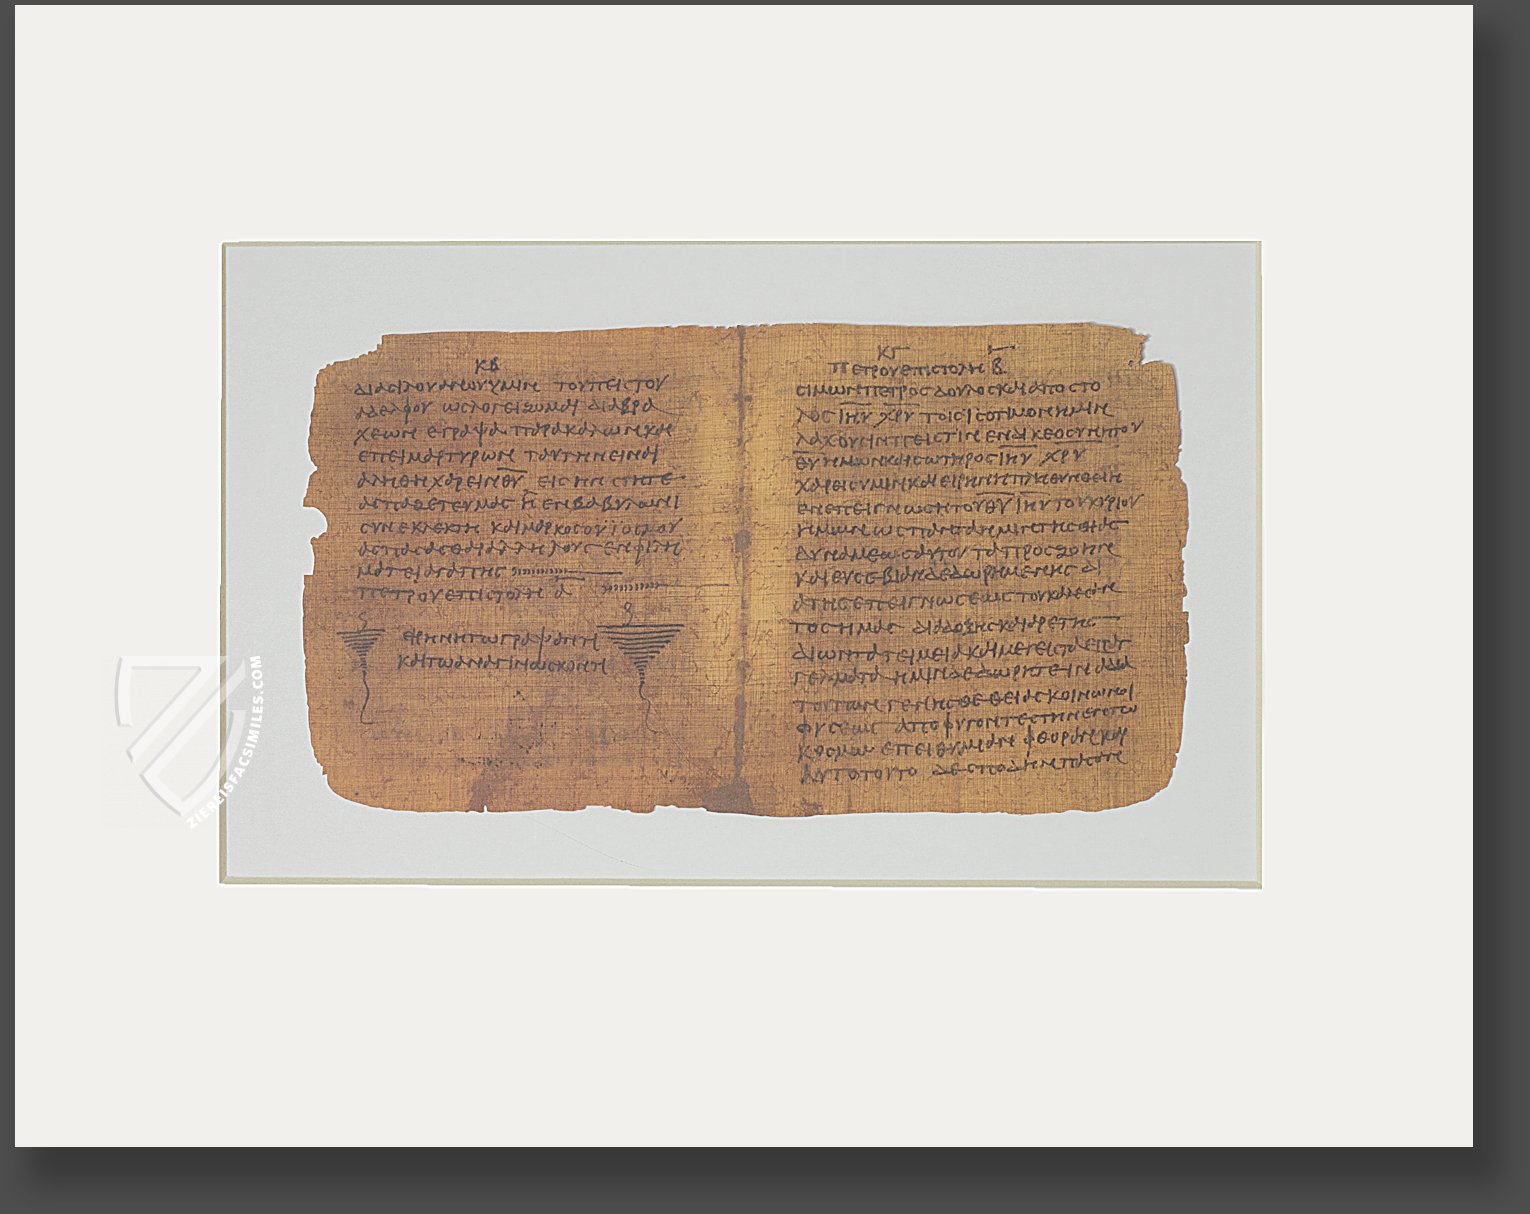 ΚΒ
ΔΙΑ ΣΙΛΟΥΑΝΩΥ ΥΜΙΝ ΤΟΥ ΠΕΙΣΤΟΥ
ΑΔΕΛΦΟΥ ΩΣ ΛΟΓΕΙΖΟΜΑΙ ΔΙΑ ΒΡΑ
ΧΕΩΝ ΕΓΡΑΨΑ ΠΑΡΑΚΑΛΩΝ ΚΑΙ
ΕΠΕΙΜΑΡΤΥΡΩΝ ΤΑΥΤΗΝ ΕΙΝΑΙ
ΑΛΗΘΗ ΧΑΡΕΙΝ ΘΥ ΕΙΣ ΗΝ ΣΤΗΤΕ
ΑΣΠΑΖΕΤΕ ΥΜΑΣ Η ΕΝ ΒΑΒΥΛΩΝΙ
ΣΥΝΕΚΛΕΚΤΗ ΚΑΙ ΜΑΡΚΟΣ Ο ΥΙΟΣ ΜΟΥ
ΑΣΠΑΣΑΣΘΑΙ ΑΛΛΗΛΟΥΣ ΕΝ ΦΙΛΗ
ΜΑΤΕΙ ΑΓΑΠΗΣ
ΠΕΤΡΟΥ ΕΠΙΣΤΟΛΗ Α
ΕΙΡΗΝΗ ΤΩ ΓΡΑΨΑΝΤΙ
ΚΑΙ ΤΩ ΑΝΑΓΙΝΩΣΚΟΝΤΙ
ΚΓ
ΠΕΤΡΟΥ ΕΠΙΣΤΟΛΗ Β
ΣΙΜΩΝ ΠΕΤΡΟΣ ΔΟΥΛΟΣ ΚΑΙ ΑΠΟΣΤΟ
ΛΟΣ ΙΗΥ ΧΡΥ ΤΟΙΣ ΙΣΟΤΙΜΟΝ ΗΜΙΝ
ΛΑΧΟΥΣΙΝ ΠΕΙΣΤΙΝ ΕΝ ΔΙΚΕΟΣΥΝΗ ΤΟΥ
ΘΥ ΗΜΩΝ ΚΑΙ ΣΩΤΗΡΟΣ ΙΗΥ ΧΡΥ
ΧΑΡΕΙΣ ΥΜΙΝ ΚΑΙ ΕΙΡΗΝΗ ΠΛΗΘΥΝΘΕΙΗ
ΕΝ ΕΠΕΙΓΝΩΣΗ ΤΟΥ ΘΥ ΙΗΥ ΤΟΥ ΚΥΡΙΟΥ
ΗΜΩΝ ΩΣ ΠΑΝΤΑ ΗΜΙΝ ΤΗΣ ΘΙΑΣ
ΔΥΝΑΜΕΩΣ ΑΥΤΟΥ ΤΑ ΠΡΟΣ ΖΩΗΝ
ΚΑΙ ΕΥΣΕΒΙΑΝ ΔΕΔΩΡΗΜΕΝΗΣ ΔΙ
Α ΤΗΣ ΕΠΕΙΓΝΩΣΕΩΣ ΤΟΥ ΚΑΛΕΣΑΝ
ΤΟΣ ΗΜΑΣ ΔΙΑ ΔΟΞΗΣ ΚΑΙ ΑΡΕΤΗΣ
ΔΙ ΩΝ ΤΑ ΤΕΙΜΕΙΑ ΚΑΙ ΜΕΓΕΙΣΤΑ ΕΠΑΓ
ΓΕΛΜΑΤΑ ΗΜΙΝ ΔΕΔΩΡΗΤΕ ΙΝΑ ΔΙΑ
ΤΟΥΤΩΝ ΓΕΝΗΣΘΕ ΘΕΙΑΣ ΚΟΙΝΩΝΟΙ
ΦΥΣΕΩΣ ΑΠΟΦΥΓΟΝΤΕΣ ΤΗΝ ΕΝ ΤΩ
ΚΟΣΜΩ ΕΠΕΙΘΥΜΙΑΝ ΦΘΟΡΑΝ ΚΑΙ
ΑΥΤΟ ΤΟΥΤΟ ΔΕ ΣΠΟΔΗΝ ΠΑΣΑΝ
ZIEREISFACSIMILES.COM